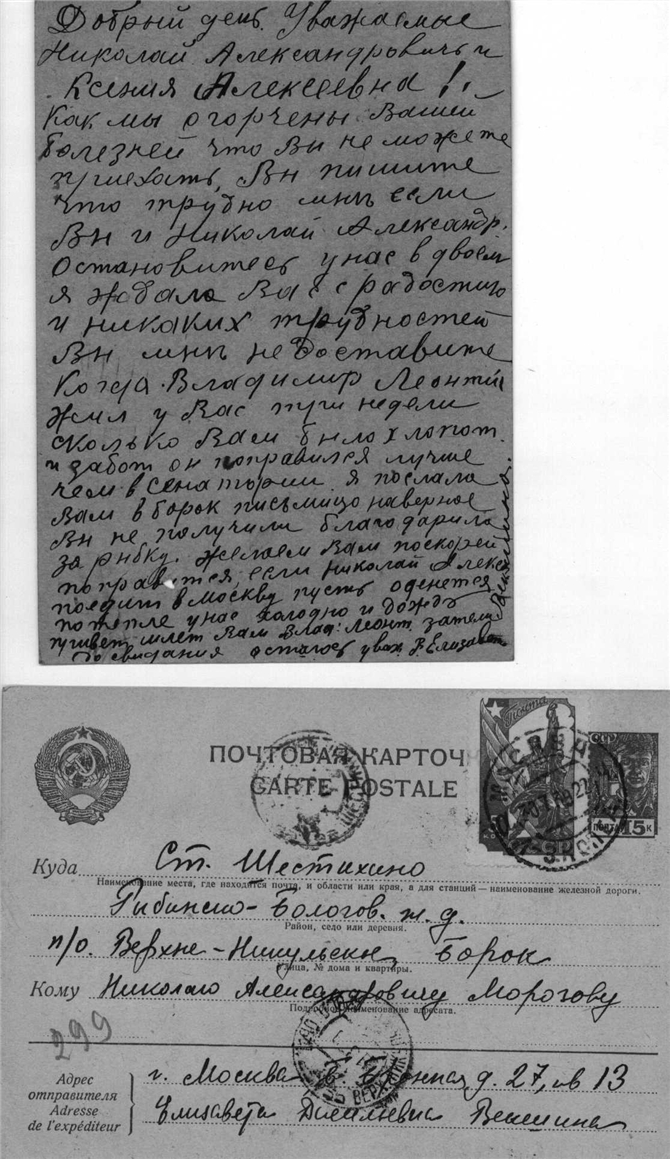 Добрый день. Уважаемые
Николай Александровичь и
Ксения Алексеевна!
Как мы огорчены Вашей
болезней что Вы не можете
приехать, Вы пишите
что трудно мнъ если
Вы и Николай Александр.
Остановитесь у нас в двоем
я ждала Вас с радостию
и никаких трудностей
Вы мнъ не доставите
Когда Владимир Леонтий
жил у Вас три недели
сколько Вам было хлопот
и забот он поправился лучше
чем в сенатории. я послала
Вам в борок письмицо наверное
Вы не получили благодарила
за рыбку. Желаем Вам поскорей
поправится, если Николай Алекс
поедит в москву пусть оденется
потепле у нас холодно и дождь
привет шлет Вам Влад. Леонт.
До свидания остаюсь уваж. Елизавет
ПОЧТОВАЯ КАРТОЧ
CARTE POSTALE
СССР
ПОЧТА 15 К
МОСКВА
Куда Ст. Шестихино
Наименование места, где находится почта, и области или края, а для станций — наименование железной дороги.
Рибинско-Бологов. ж. д.
Район, село или деревня.
п/о. Верхне-Никульское, Борок
Улица, № дома и квартиры.
Кому Николаю Александровичу Морозову
Подробное наименование адресата.
299
Адрес
отправителя
Adresse
de l'expéditeur
г. Москва д. 27, кв 13
Елизавета Векшина